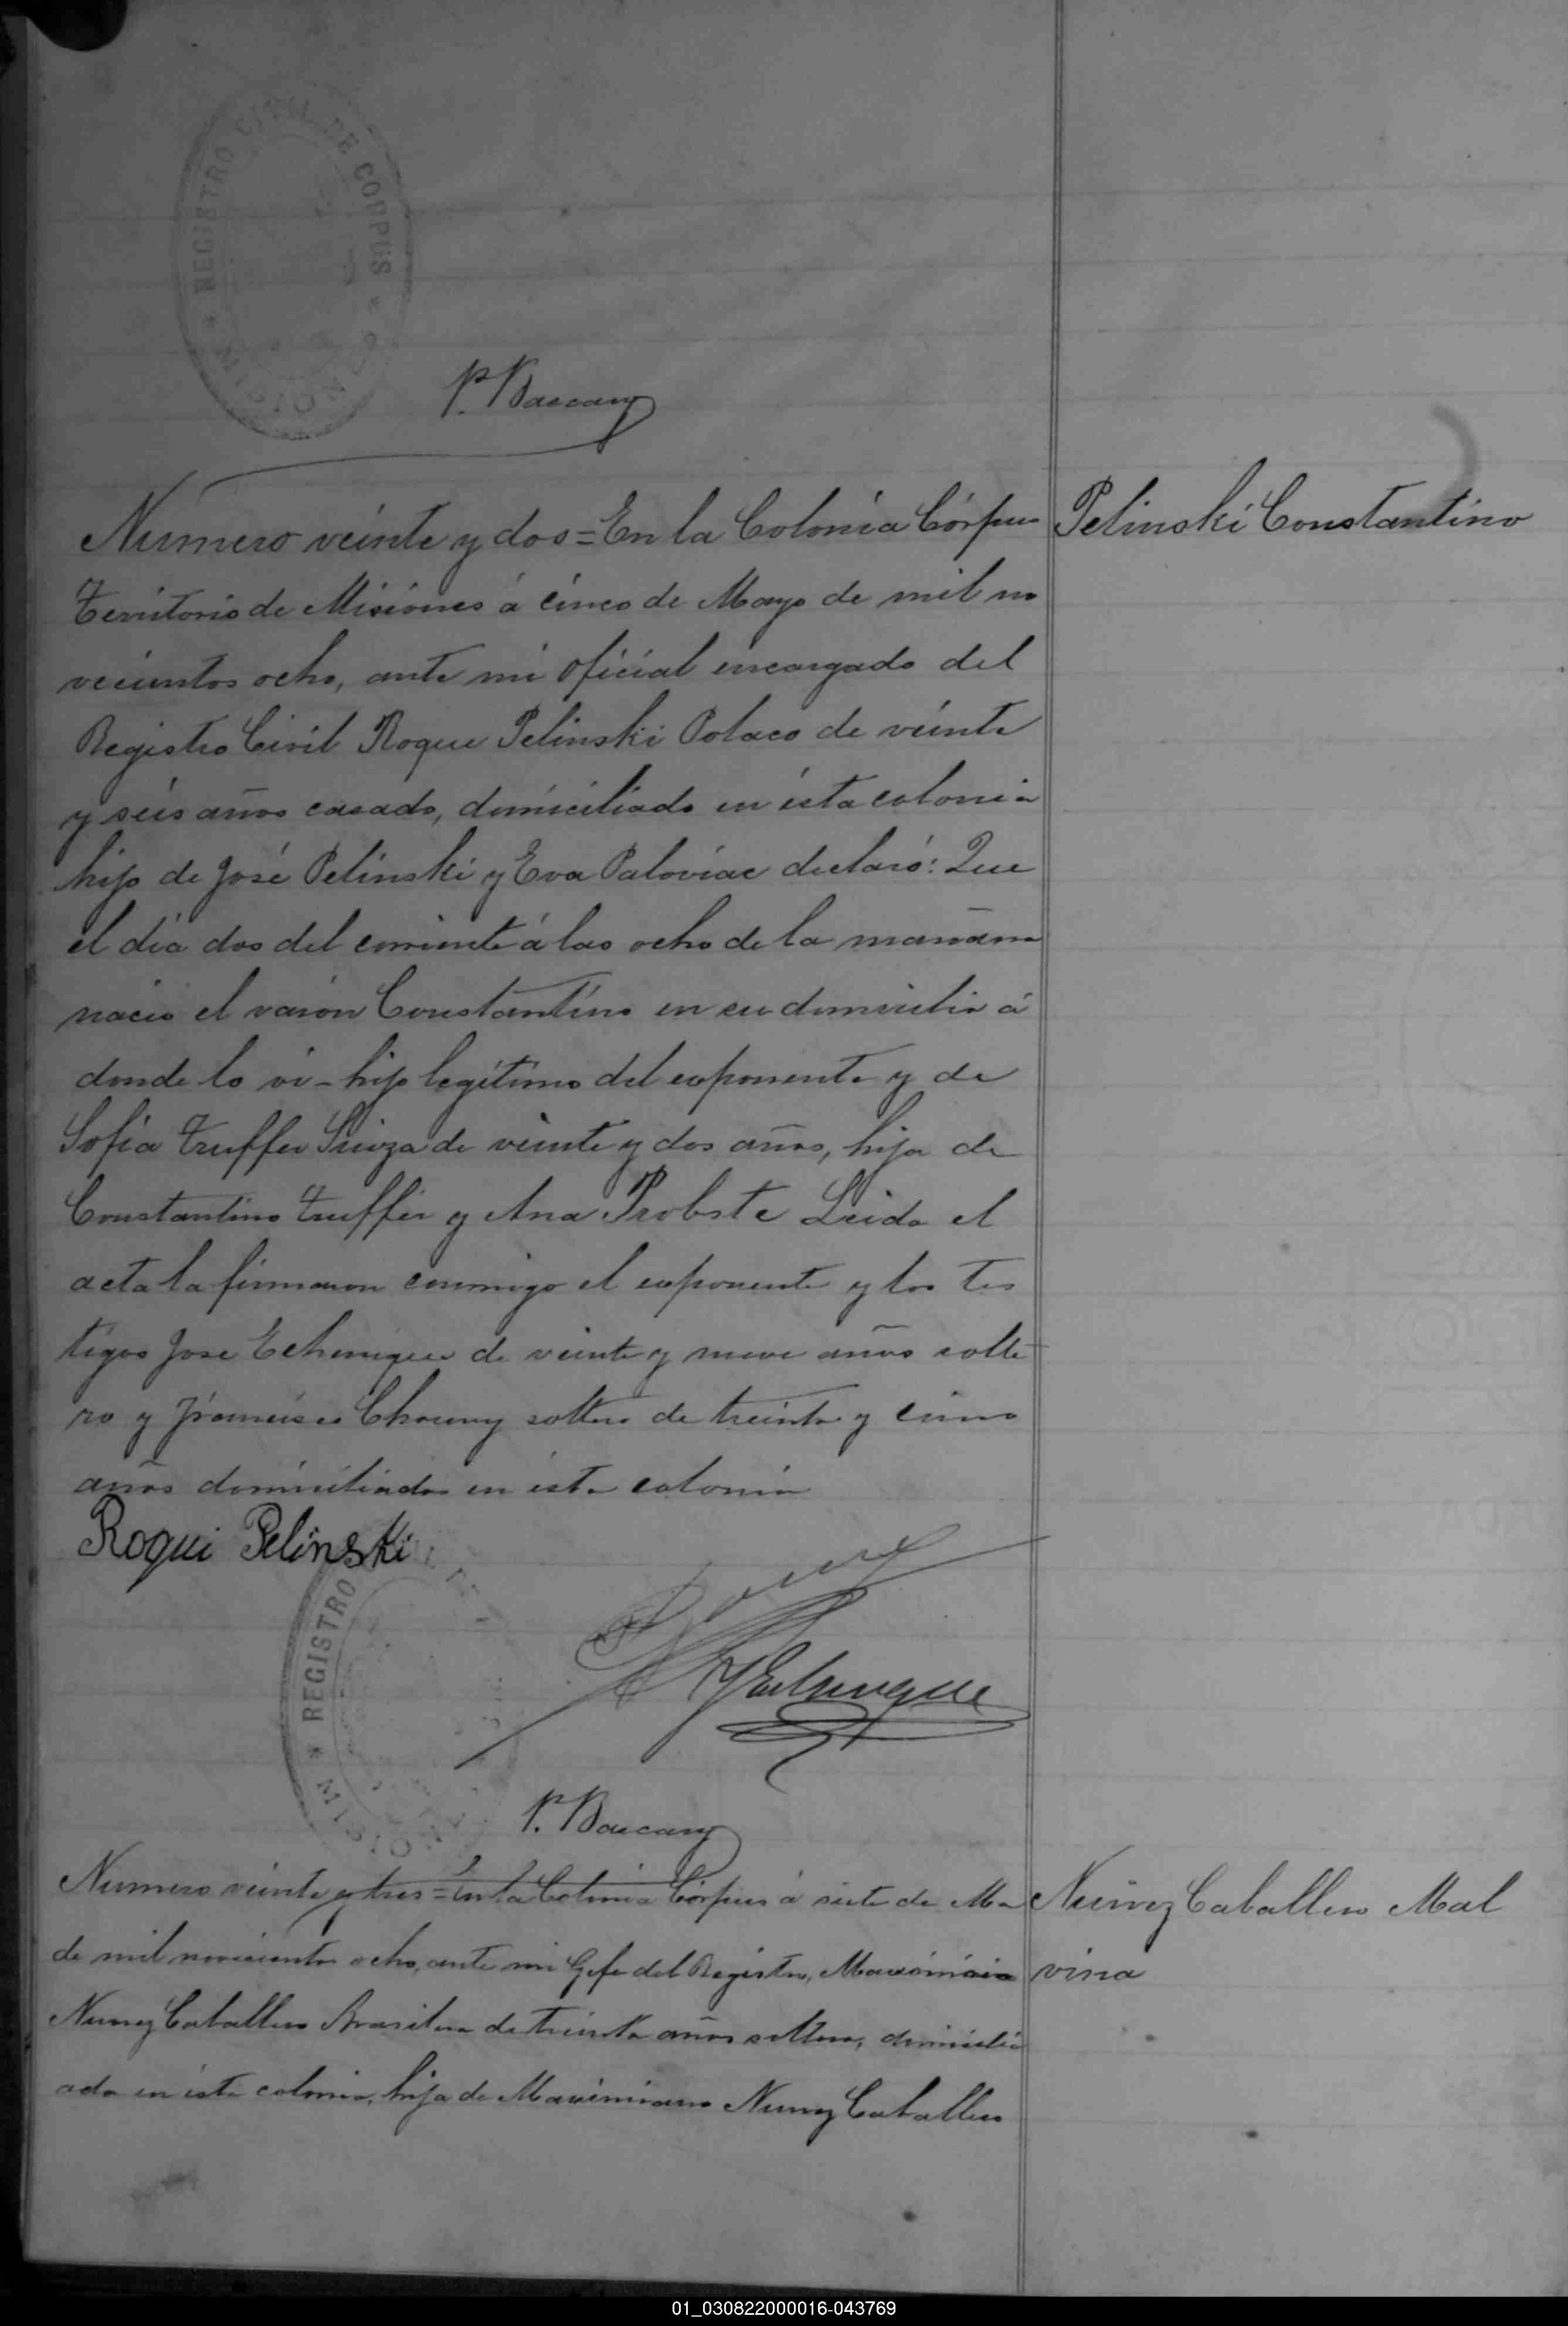 REGISTRO CIVIL DE CORPUS * MISIONES
P. Bascary
Numero veinte y dos = En la Colonia Córpus
Pelinski Constantino
Territorio de Misiones á cinco de Mayo de mil no
vecientos ocho, ante mi oficial encargado del
Registro Civil Roque Pelinski Polaco de veinte
y seis años casado, domiciliado en ésta colonia
hijo de José Pelinski y Eva Paloviac declaró: Que
el día dos del corriente á las ocho de la mañana
nació el varón Constantino en su domicilio á
donde lo vi - hijo legítimo del exponente y de
Sofía Truffer Suiza de veinte y dos años, hija de
Constantino Truffer y Ana Probste Leida el
acta la firmaron conmigo el exponente y los tes
tigos Jose Echenique de veinte y nueve años solte
ro y Francisco soltero de treinta y cinco
años domiciliados en ésta colonia
Roqui Pelinski
REGISTRO
* MISIO
JEchenique
P. Bascary
Numero veinte y tres = En la Colonia Córpus á siete de Ma
Nuñez Caballero Mal
de mil novecientos ocho, ante mi Gefe del Registro,
vina
Nunez Caballero de treinta años soltera, domicili
ada en ésta colonia, hija de Maximiano Nunez Caballero
01_030822000016-043769